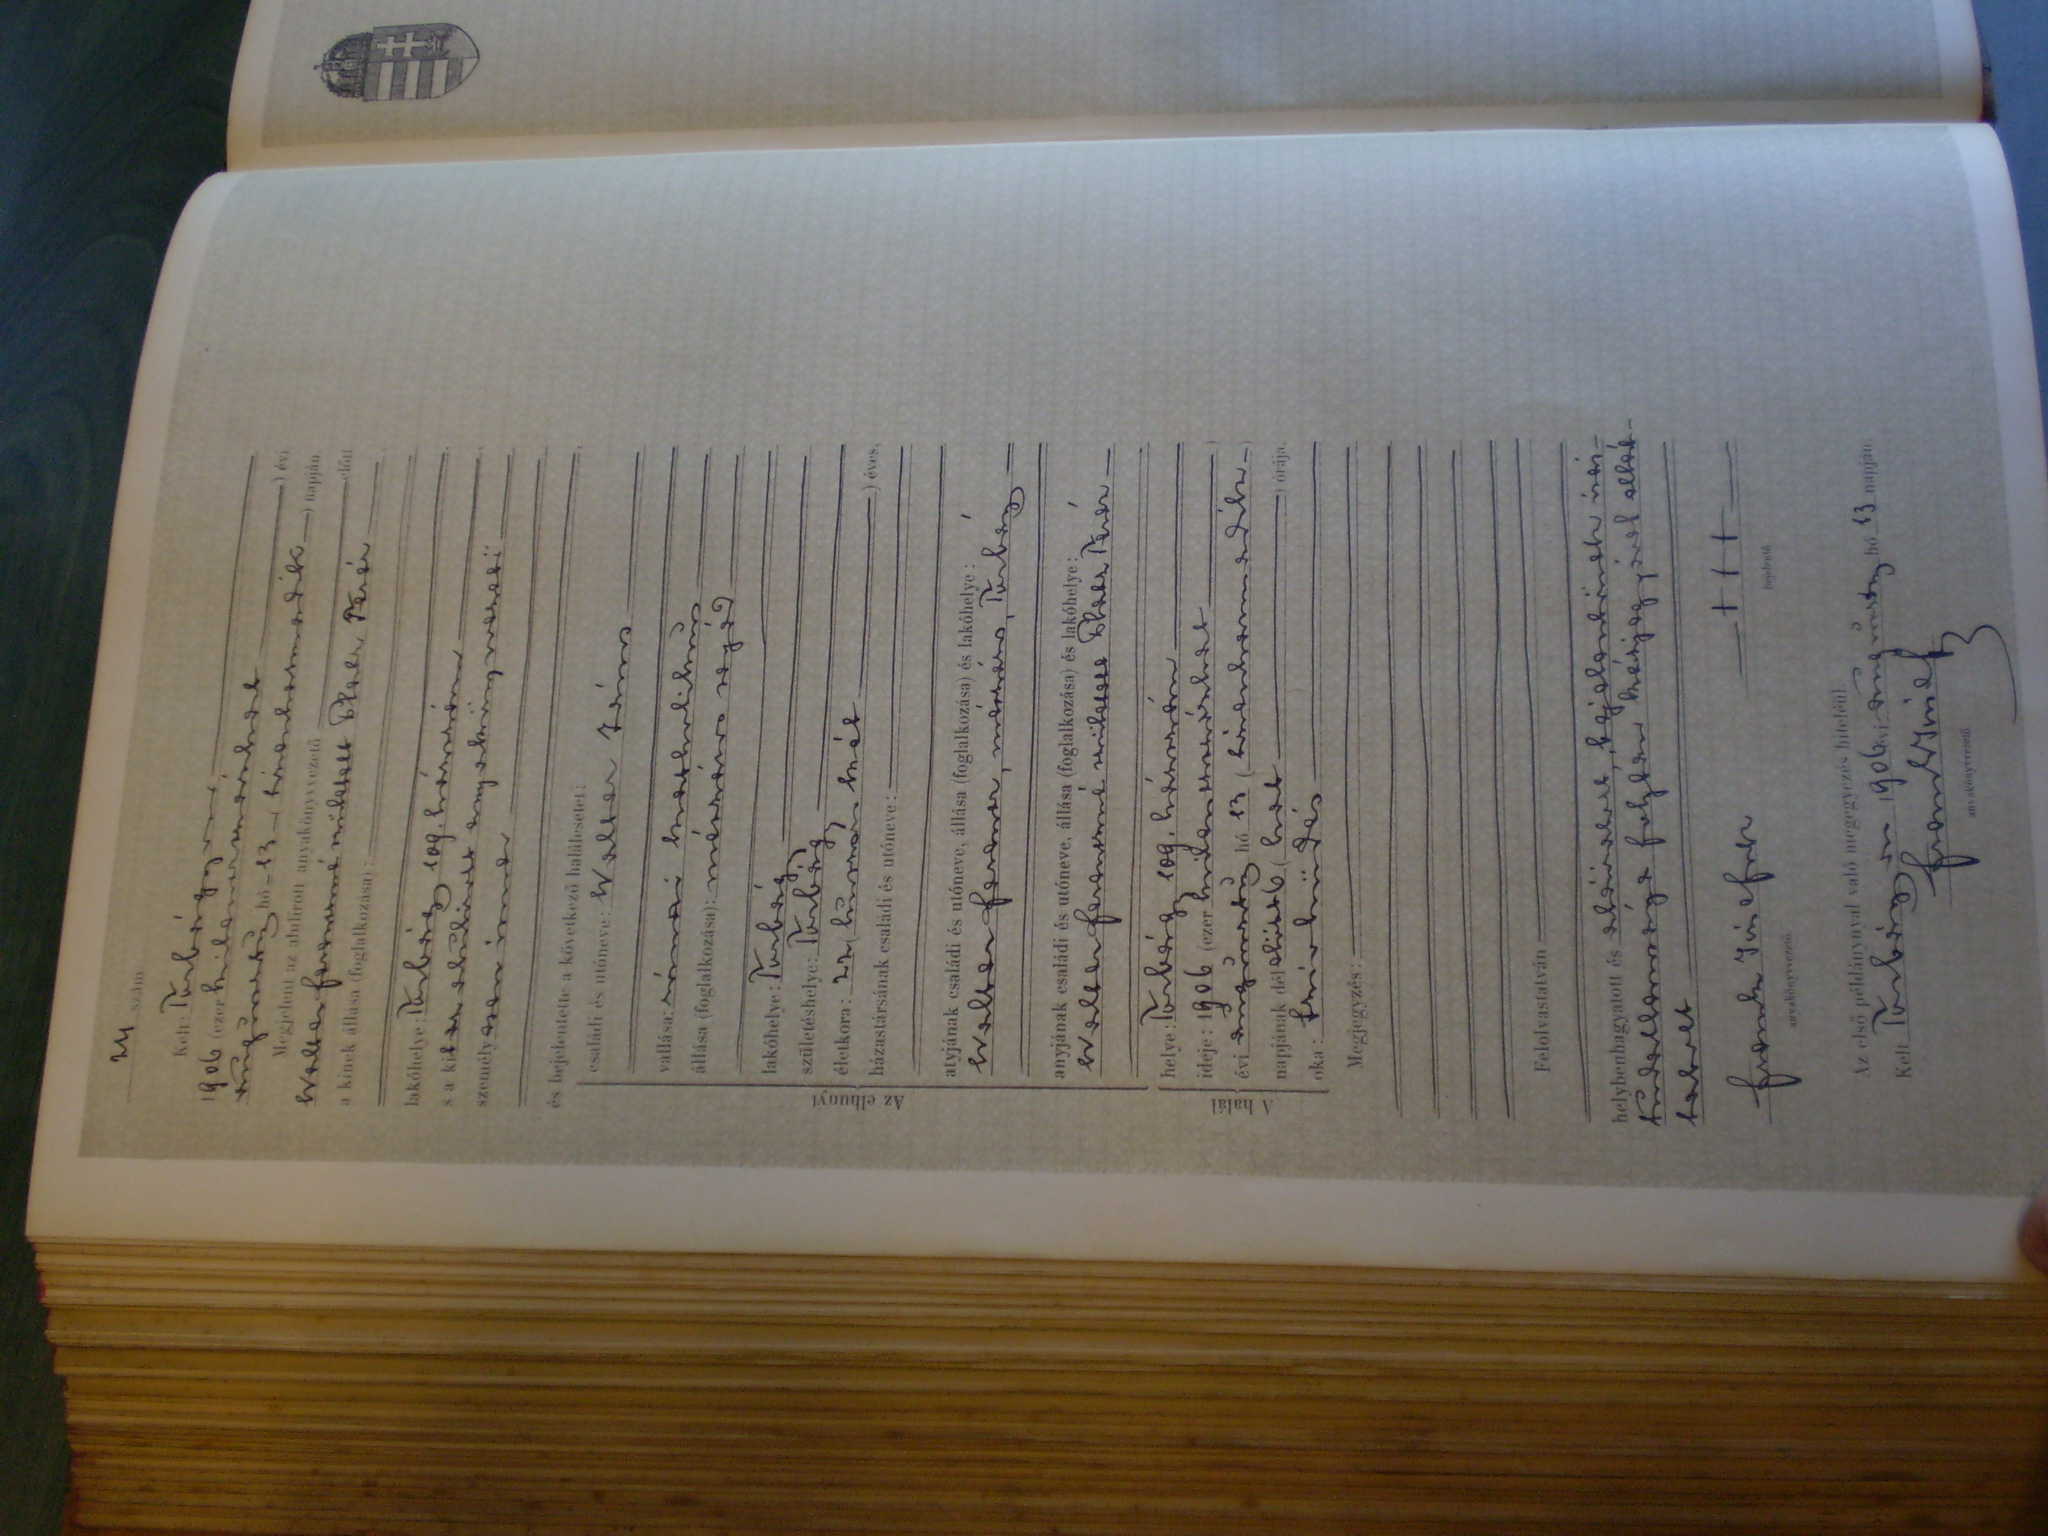 24 szám
Kelt: Torbágyon
1906 (ezer kilencszázhat) évi
augusztus hó 13 (tizenharmadik) napján.
Megjelent az alulirott anyakönyvvezető előtt
Walter Ferencné született Teréz
a kinek állása (foglalkozása):
lakóhelye: Torbágy 109. házszám
s a kit
személyesen ismer
és bejelentette a következő halálesetet:
családi és utóneve: Walter János
vallása: római katholikus
állása (foglalkozása): mészáros segéd
lakóhelye: Torbágy
születéshelye: Torbágy
életkora: 22 (huszonkét) éves,
házastársának családi és utóneve:
atyjának családi és utóneve, állása (foglalkozása) és lakóhelye:
Walter Ferencz, mészáros, Torbágy
anyjának családi és utóneve, állása (foglalkozása) és lakóhelye:
Walter Ferencné született Teréz
Az elhunyt
helye: Torbágy 109. házszám
ideje: 1906 (ezer kilencszázhat)
évi augusztus hó 13 (tizenharmadik)
napjának dél előtt 6 (hat) órája.
oka: tüdővész
A halál
Megjegyzés:
Felolvastatván
helybenhagyatott és aláiratott, bejelentőnek irás-
tudatlansága folytán kézjegyével ellát-
tatott
Frank József + + +
anyakönyvvezető bejelentő
Az első példánynyal való megegyezés hiteléül.
Kelt Torbágyon 1906. évi augusztus hó 13 napján.
Frank József
anyakönyvvezető